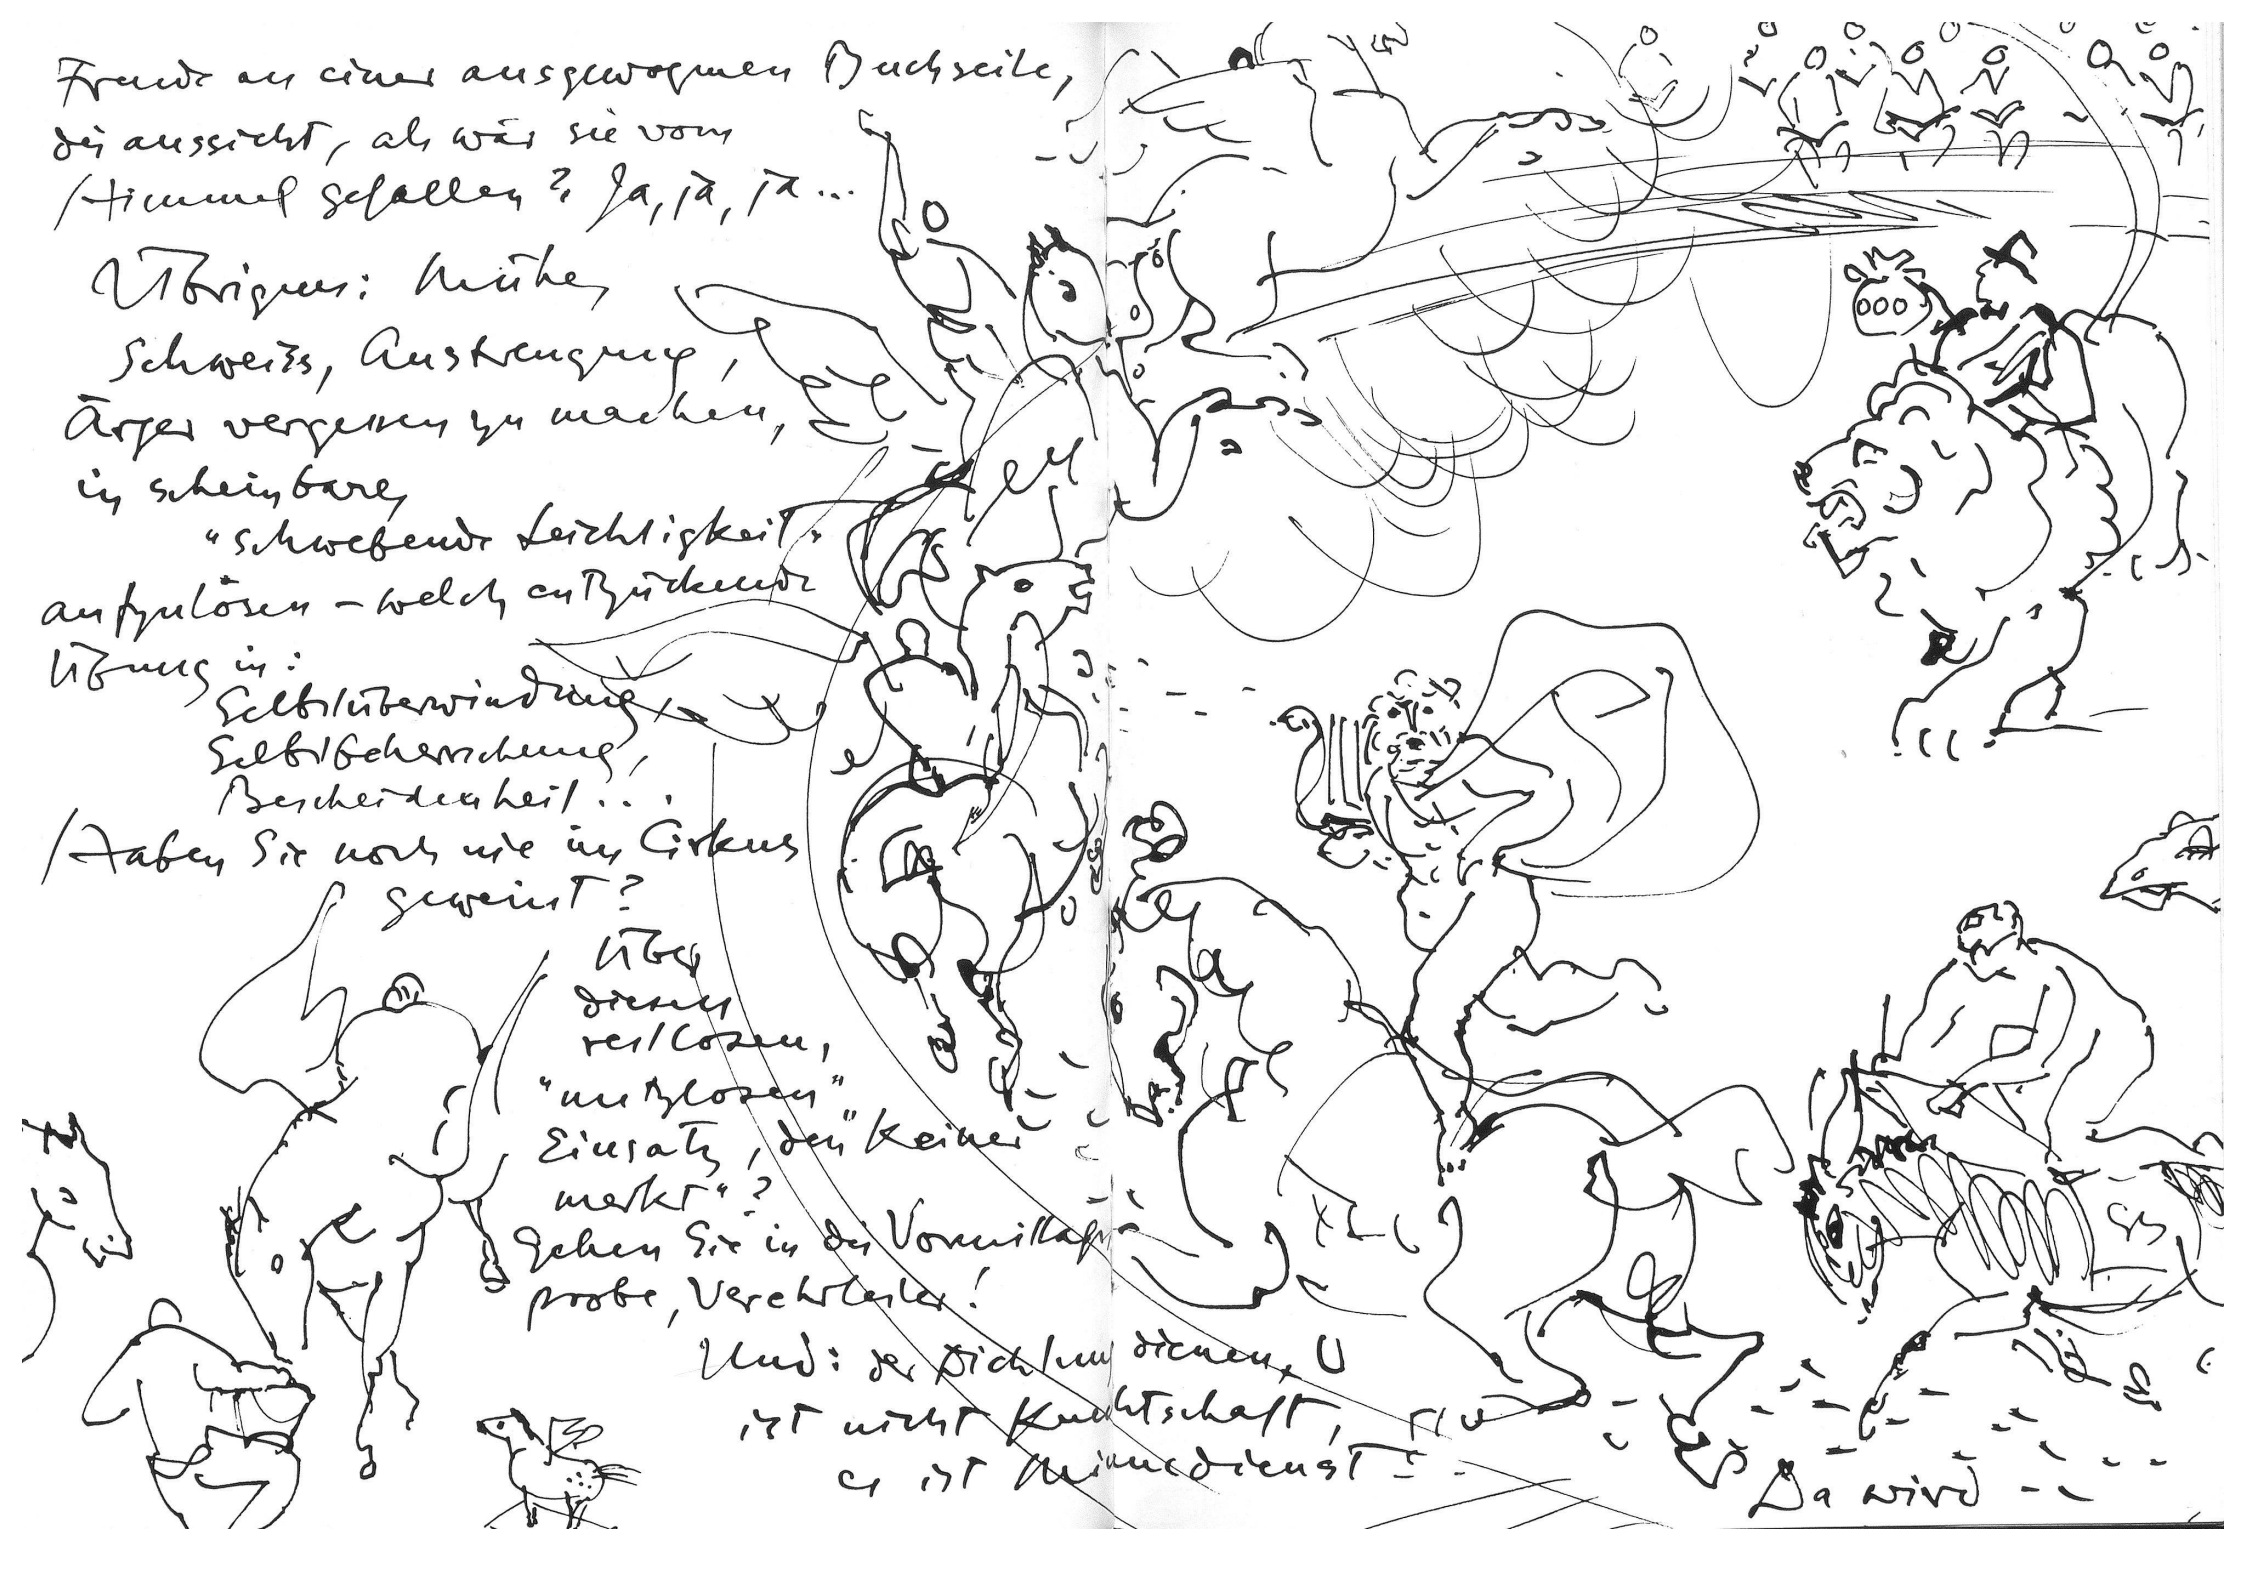 Freude an einer ausgewognen Buchseite,
die aussieht, als wär sie vom
Himmel gefallen? Ja, ja, ja...
Übrigens: Mühe,
Schweiss, Anstrengung,
Ärger vergessen zu machen,
in scheinbare,
"schwebende Leichtigkeit"
aufzulösen – welch entzückende
Übung in:
Selbstüberwindung,
Selbstbeherrschung,
Bescheidenheit...
Haben Sie noch nie im Cirkus
geweint?
Über
diesen
restlosen,
"nutzlosen"
Einsatz, den "keiner
merkt"?
Gehen Sie in die Vormittags-
probe, Verehrtester!
Und: der Dichtung dienen,
ist nicht Knechtschaft,
es ist Minnedienst!
Da wird --